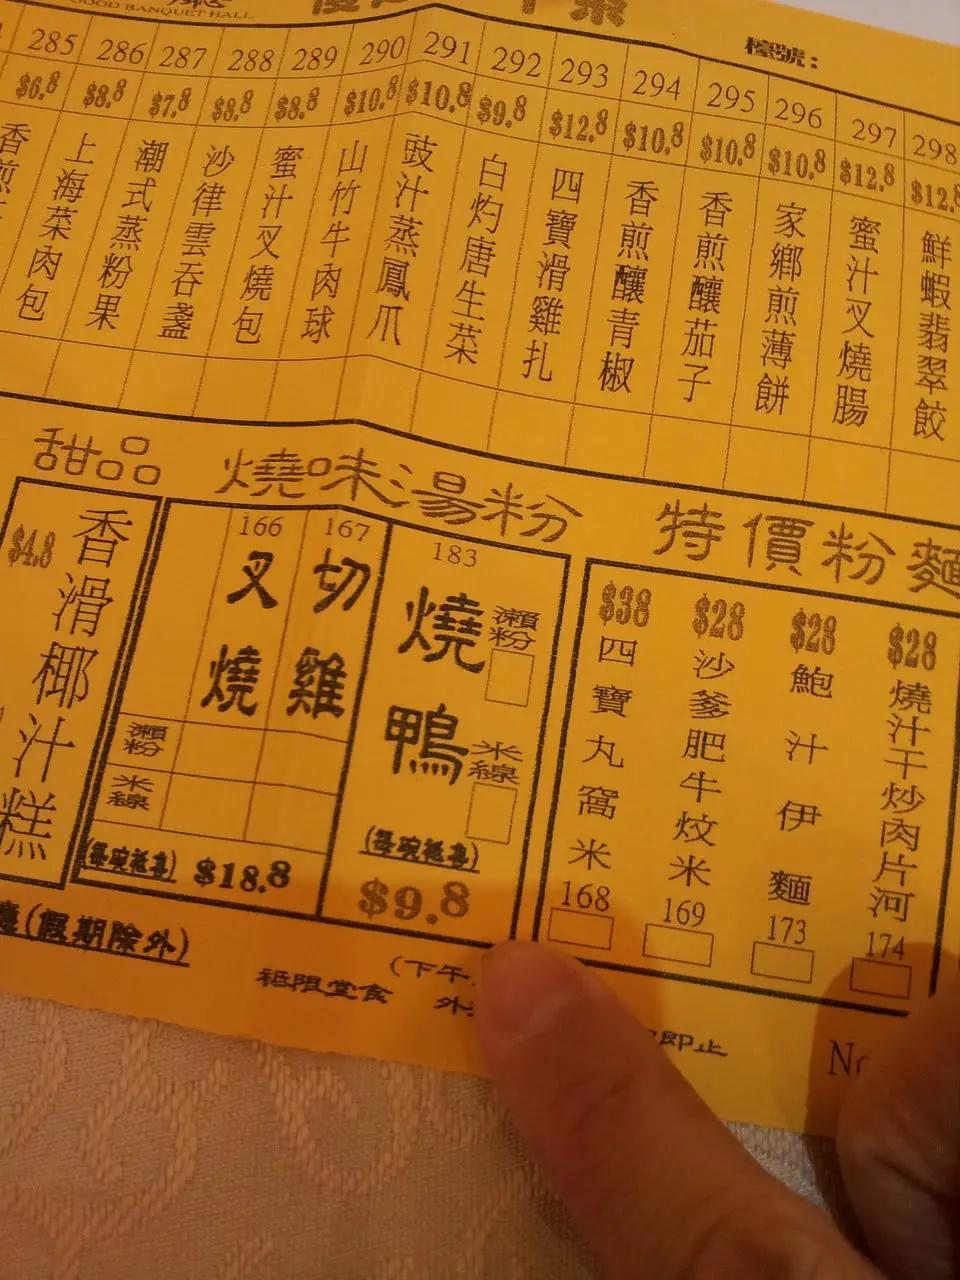 GOOD BANQUET HALL
檯號：
285 286 287 288 289 290 291 292 293 294 295 296 297 298
$6.8 $8.8 $7.8 $8.8 $8.8 $10.8 $10.8 $9.8 $12.8 $10.8 $10.8 $10.8 $12.8 $12.8
香煎
上海菜肉包
潮式蒸粉果
沙律雲吞盞
蜜汁叉燒包
山竹牛肉球
豉汁蒸鳳爪
白灼唐生菜
四寶滑雞扎
香煎釀青椒
香煎釀茄子
家鄉煎薄餅
蜜汁叉燒腸
鮮蝦翡翠餃
甜品
$4.8
香滑椰汁糕
燒味湯粉
166
叉燒
167
切雞
瀨粉
米線
(每碗衹售)
$18.8
183
燒鴨
瀨粉
米線
(每碗衹售)
$9.8
特價粉麵
$38
四寶丸窩米
168
$28
沙爹肥牛炆米
169
$28
鮑汁伊麵
173
$28
燒汁干炒肉片河
174
(假期除外)
衹限堂食
(下午
外
即止
No